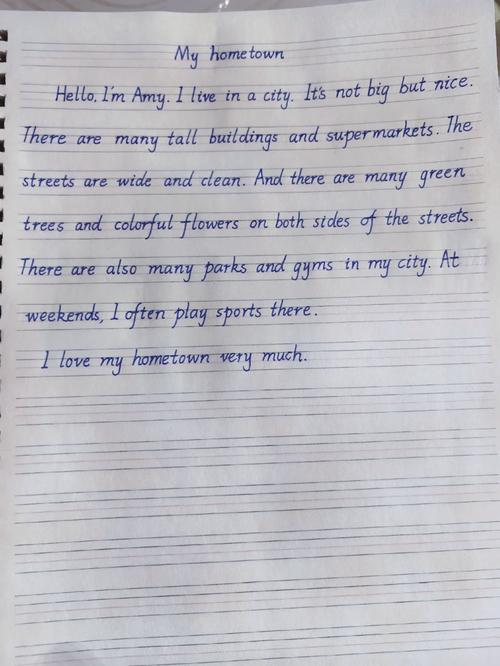 My hometown
Hello, I'm Amy. I live in a city. It's not big but nice.
There are many tall buildings and supermarkets. The
streets are wide and clean. And there are many green
trees and colorful flowers on both sides of the streets.
There are also many parks and gyms in my city. At
weekends, I often play sports there.
I love my hometown very much.